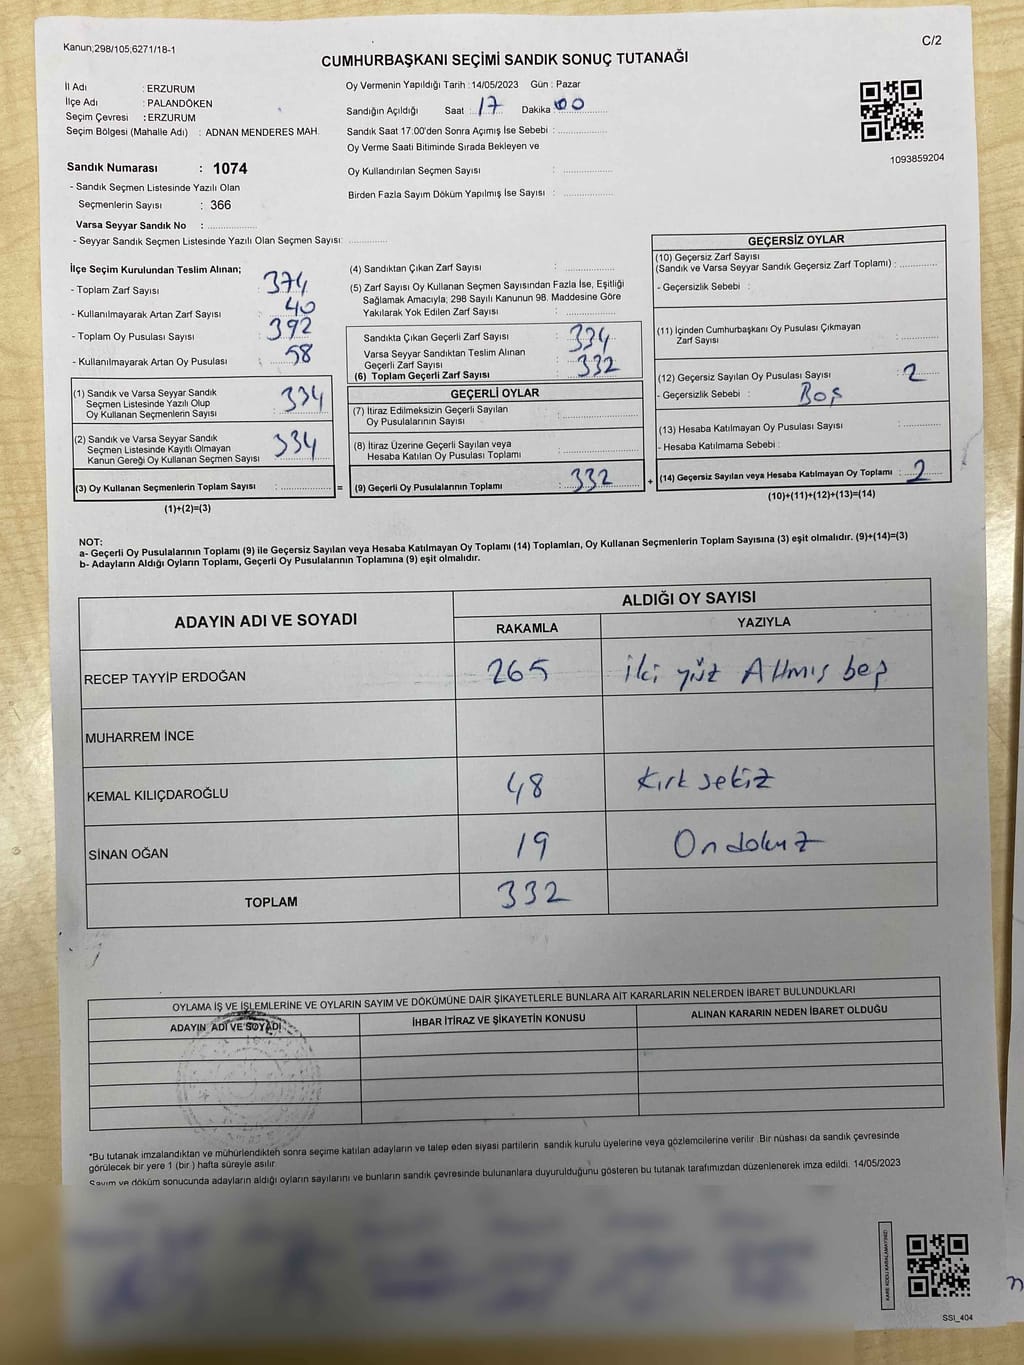 Kanun;298/105;6271/18-1
C/2
CUMHURBAŞKANI SEÇİMİ SANDIK SONUÇ TUTANAĞI
İl Adı : ERZURUM
İlçe Adı : PALANDÖKEN
Seçim Çevresi : ERZURUM
Seçim Bölgesi (Mahalle Adı) : ADNAN MENDERES MAH.
Oy Vermenin Yapıldığı Tarih : 14/05/2023 Gün : Pazar
Sandığın Açıldığı Saat : 17 Dakika 00
Sandık Saat 17.00'den Sonra Açımış İse Sebebi :
Oy Verme Saati Bitiminde Sırada Bekleyen ve
Oy Kullandırılan Seçmen Sayısı :
Birden Fazla Sayım Döküm Yapılmış İse Sayısı :
1093859204
Sandık Numarası : 1074
- Sandık Seçmen Listesinde Yazılı Olan
Seçmenlerin Sayısı : 366
Varsa Seyyar Sandık No :
- Seyyar Sandık Seçmen Listesinde Yazılı Olan Seçmen Sayısı:
İlçe Seçim Kurulundan Teslim Alınan;
- Toplam Zarf Sayısı : 374
- Kullanılmayarak Artan Zarf Sayısı : 40
- Toplam Oy Pusulası Sayısı : 392
- Kullanılmayarak Artan Oy Pusulası : 58
(1) Sandık ve Varsa Seyyar Sandık
Seçmen Listesinde Yazılı Olup
Oy Kullanan Seçmenlerin Sayısı : 334
(2) Sandık ve Varsa Seyyar Sandık
Seçmen Listesinde Kayıtlı Olmayan
Kanun Gereği Oy Kullanan Seçmen Sayısı : 334
(3) Oy Kullanan Seçmenlerin Toplam Sayısı : =
(1)+(2)=(3)
(4) Sandıktan Çıkan Zarf Sayısı :
(5) Zarf Sayısı Oy Kullanan Seçmen Sayısından Fazla İse, Eşitliği
Sağlamak Amacıyla; 298 Sayılı Kanunun 98. Maddesine Göre
Yakılarak Yok Edilen Zarf Sayısı :
Sandıkta Çıkan Geçerli Zarf Sayısı : 334
Varsa Seyyar Sandıktan Teslim Alınan
Geçerli Zarf Sayısı : 332
(6) Toplam Geçerli Zarf Sayısı :
GEÇERLİ OYLAR
(7) İtiraz Edilmeksizin Geçerli Sayılan
Oy Pusulalarının Sayısı :
(8) İtiraz Üzerine Geçerli Sayılan veya
Hesaba Katılan Oy Pusulası Toplamı :
(9) Geçerli Oy Pusulalarının Toplamı : 332 +
GEÇERSİZ OYLAR
(10) Geçersiz Zarf Sayısı
(Sandık ve Varsa Seyyar Sandık Geçersiz Zarf Toplamı) :
- Geçersizlik Sebebi :
(11) İçinden Cumhurbaşkanı Oy Pusulası Çıkmayan
Zarf Sayısı :
(12) Geçersiz Sayılan Oy Pusulası Sayısı : 2
- Geçersizlik Sebebi : Boş
(13) Hesaba Katılmayan Oy Pusulası Sayısı :
- Hesaba Katılmama Sebebi :
(14) Geçersiz Sayılan veya Hesaba Katılmayan Oy Toplamı : 2
(10)+(11)+(12)+(13)=(14)
NOT:
a- Geçerli Oy Pusulalarının Toplamı (9) ile Geçersiz Sayılan veya Hesaba Katılmayan Oy Toplamı (14) Toplamları, Oy Kullanan Seçmenlerin Toplam Sayısına (3) eşit olmalıdır. (9)+(14)=(3)
b- Adayların Aldığı Oyların Toplamı, Geçerli Oy Pusulalarının Toplamına (9) eşit olmalıdır.
ADAYIN ADI VE SOYADI ALDIĞI OY SAYISI
RAKAMLA YAZIYLA
RECEP TAYYİP ERDOĞAN 265 iki yüz Altmış beş
MUHARREM İNCE
KEMAL KILIÇDAROĞLU 48 Kırk sekiz
SİNAN OĞAN 19 On dokuz
TOPLAM 332
OYLAMA İŞ VE İŞLEMLERİNE VE OYLARIN SAYIM VE DÖKÜMÜNE DAİR ŞİKAYETLERLE BUNLARA AİT KARARLARIN NELERDEN İBARET BULUNDUKLARI
ADAYIN ADI VE SOYADI İHBAR İTİRAZ VE ŞİKAYETİN KONUSU ALINAN KARARIN NEDEN İBARET OLDUĞU
*Bu tutanak imzalandıktan ve mühürlendikten sonra seçime katılan adayların ve talep eden siyasi partilerin sandık kurulu üyelerine veya gözlemcilerine verilir .Bir nüshası da sandık çevresinde
görülecek bir yere 1 (bir ) hafta süreyle asılır.
Sayım ve döküm sonucunda adayların aldığı oyların sayılarını ve bunların sandık çevresinde bulunanlara duyurulduğunu gösteren bu tutanak tarafımızdan düzenlenerek imza edildi. 14/05/2023
KARE KODU KARALAMAYINIZ!
SSI_404